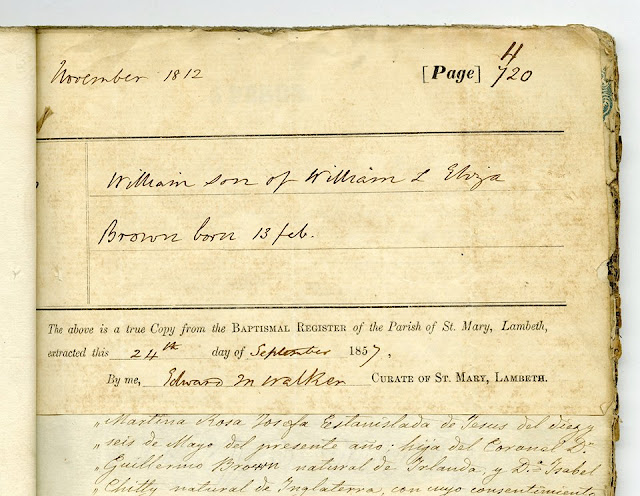 4
November 1812 [Page] 720
William son of William & Eliza
Brown born 13 feb.
The above is a true Copy from the BAPTISMAL REGISTER of the Parish of St. Mary, Lambeth,
extracted this 24th day of September 1857,
By me, Edward M Walker CURATE OF ST. MARY, LAMBETH.
„Martina Rosa Josefa Estanislada de Jesus del diez y
„seis de Mayo del presente año: hija del Coronel Dn.
„Guillermo Brown natural de Irlanda, y Da. Isabel
„Chitty natural de Inglaterra, con cuyo consentimiento